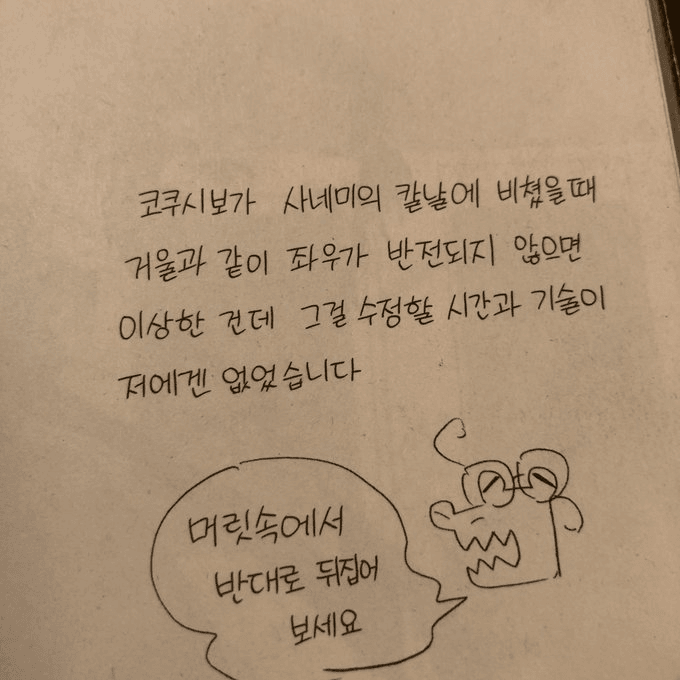 코쿠시보가 사네미의 칼날에 비쳤을때
거울과 같이 좌우가 반전되지 않으면
이상한 건데 그걸 수정할 시간과 기술이
저에겐 없었습니다
머릿속에서
반대로 뒤집어
보세요